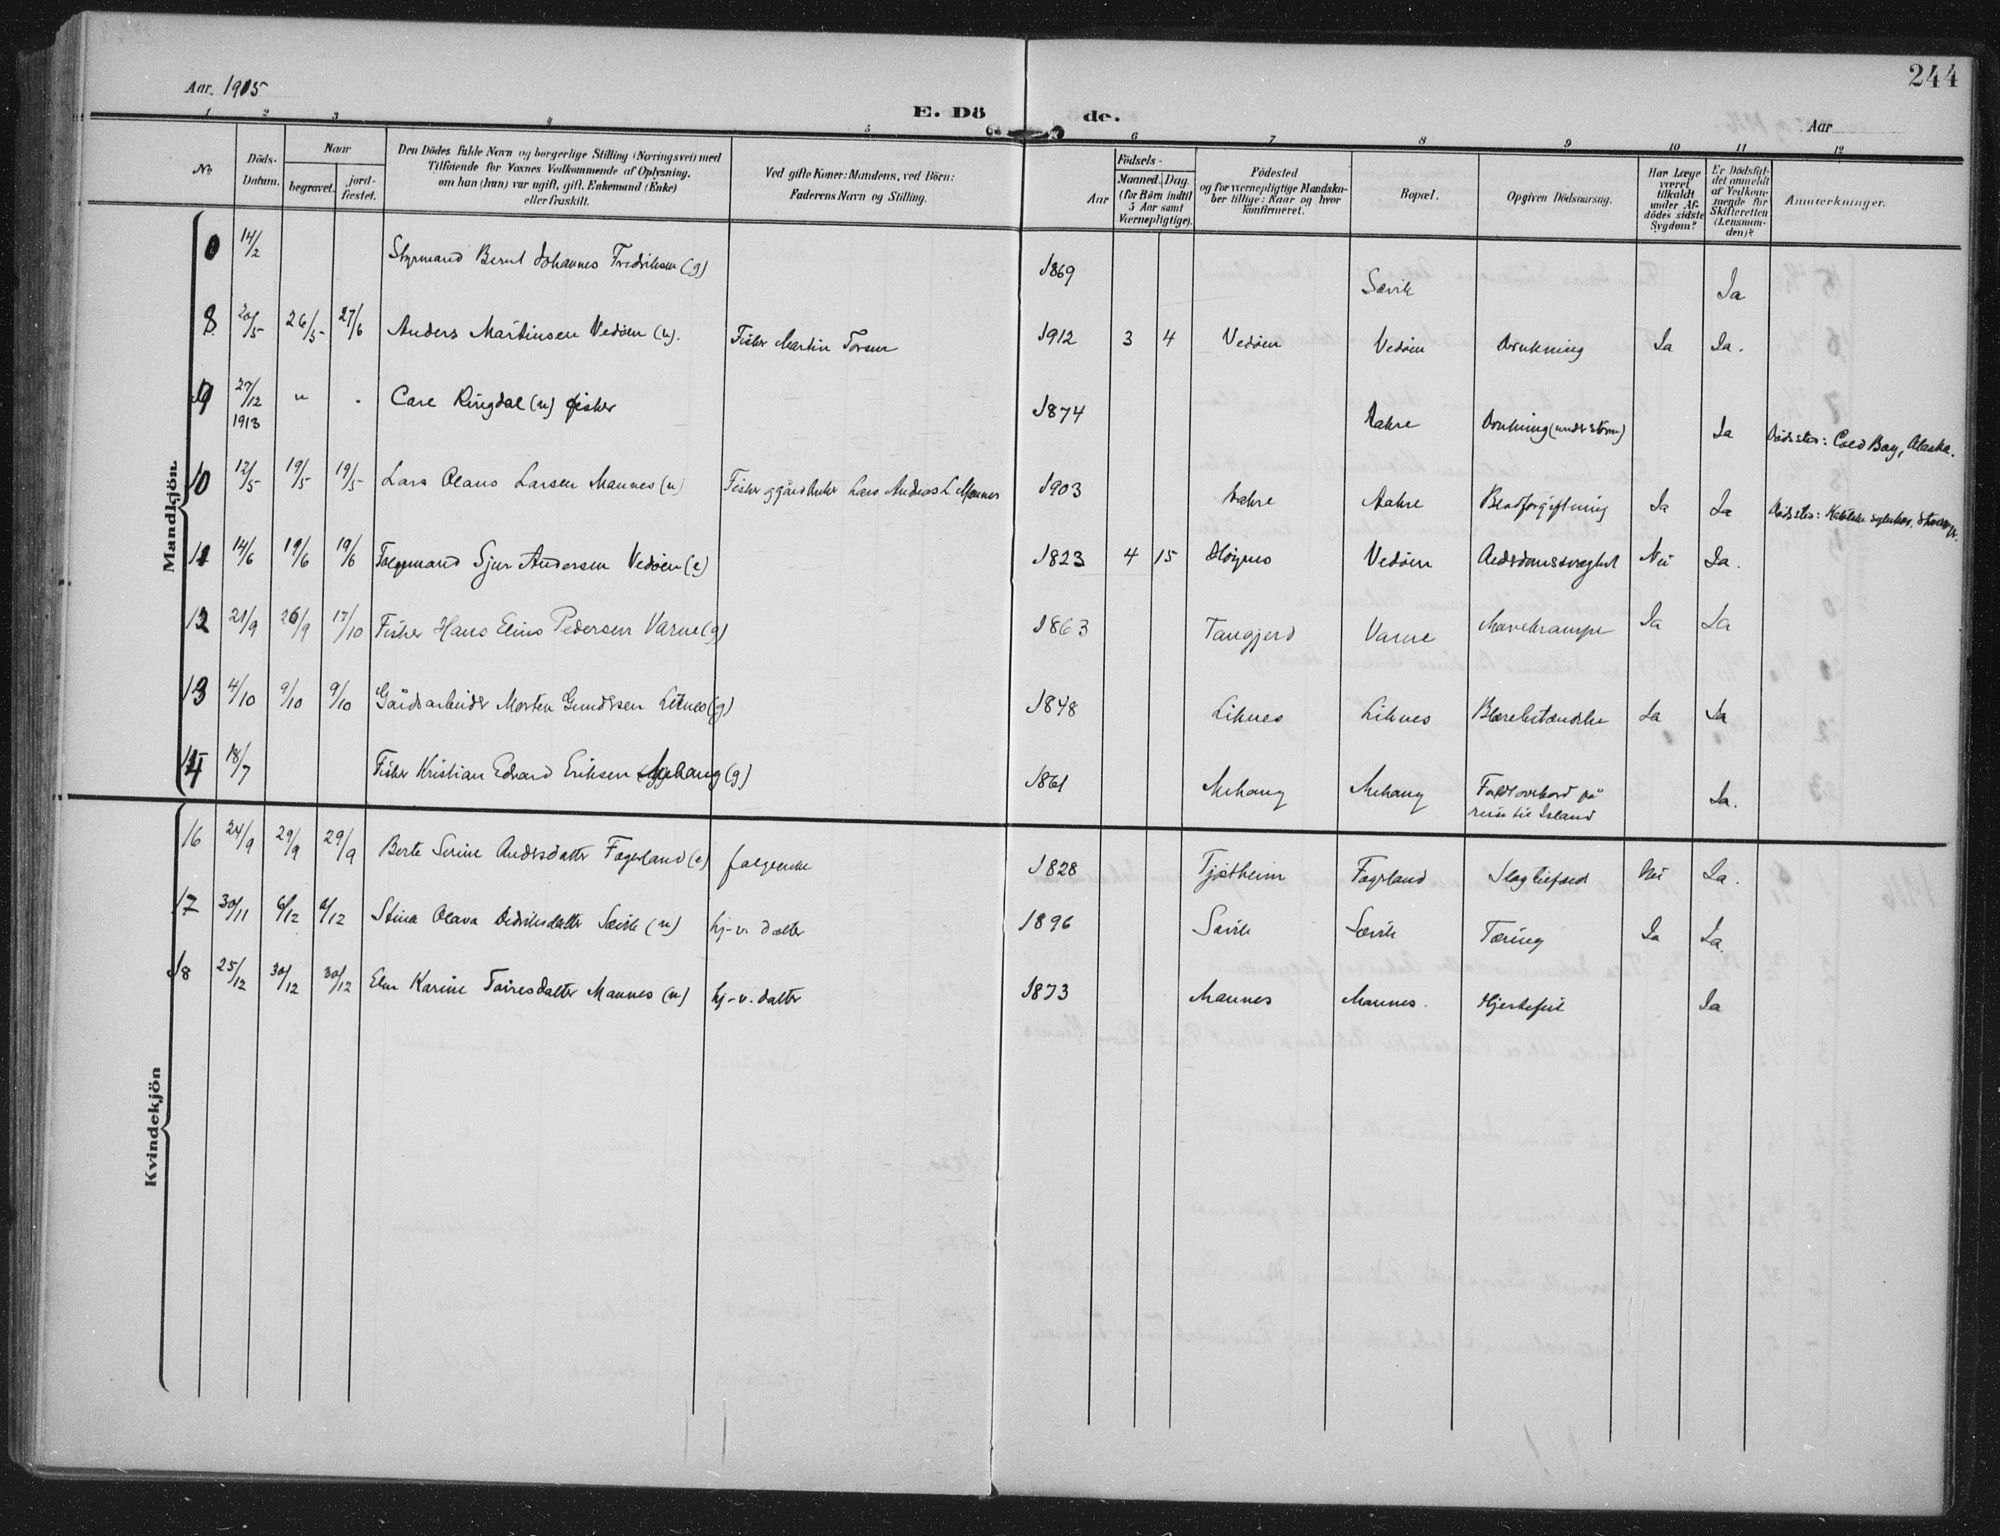 244
Aar. 1915
E. Döde.
Aar
1 2 3 4 5 6 7 8 9 10 11 12
No.
Döds-Datum.
Naar
begravet.
jord-fæstet.
Den Dödes fulde Navn og borgerlige Stilling (Næringsvei) med
Tilföiende for Voxnes Vedkommende af Oplysning,
om han (hun) var ugift, gift, Enkemand (Enke)
eller fraskilt.
Ved gifte Koner: Mandens, ved Börn:
Faderens Navn og Stilling.
Födsels-
Aar
Maaned. Dag.
(for Börn indtil
5 Aar samt
Værnepligtige).
Födested
og for værnepligtige Mandska-
ber tillige: Naar og hvor
konfirmeret.
Bopæl.
Opgiven Dödsaarsag.
Har Læge
været
tilkaldt
under Af-
dödes sidste
Sygdom?
Er Dödsfal-
det anmeldt
af Vedkom-
mende for
Skifteretten
(Lensman-
den)?
Anmærkninger.
Mandkjön.
14/2 Styrmand Bernt Johannes Fredriksen (g) 1869 Sævik Ja
8 20/5 26/5 27/6 Anders Martinsen Vedøen (u). Fisker Martin Torsen 1912 3 4 Vedøen Vedøen Drukning Ja Ja.
9 27/12 1913 " . Carl Ringdal (u) fisker 1874 Aakre Drukning (under storm) Ja Dødssted: Cold Bay, Alaska.
10 12/5 19/5 19/5 Lars Olaus Larsen Mannes (u) Fisker og gårdbruker Lars Andreas L. Mannes 1903 Aakre Aakre Blodforgiftning Ja Ja Dødssted: Katolske sykehus,
11 14/6 19/6 19/6 Følgemand Sjur Andersen Vedøen (e) 1823 4 15 Høynes Vedøen Alderdomssvaghet Nei Ja.
12 21/9 26/9 17/10 Fisker Hans Elias Pedersen Varne (g) 1863 Tangjerd Varne Mavekrampe Ja Ja
13 4/10 9/10 9/10 Gårdsarbeider Morten Gundersen Liknes (g) 1848 Liknes Liknes Blærebetændelse Ja Ja
14 18/7 Fisker Kristian Edvard Eriksen Mehaug (g) 1861 Mehaug Mehaug Faldt overbord på
reise til Island Ja.
Kvindekjön
16 24/9 29/9 29/9 Berte Serine Andersdatter Fagerland (e) følgeenke 1828 Tjøstheim Fagerland Slagtilfæld Nei Ja.
17 30/11 6/12 6/12 Stina Olava Didriksdatter Sævik (u) hj-v. datter 1896 Sævik Sævik Tæring Ja Ja.
18 25/12 30/12 30/12 Elen Karine Toresdatter Mannes (u) hj-v. datter 1873 Mannes Mannes. Hjertefeil Ja